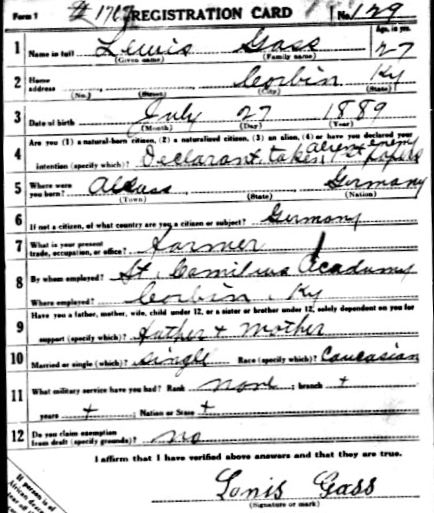 Form 1 # 1717 REGISTRATION CARD No. 129
1 Name in full Lewis Gass Age, in yrs. 27
(Given name) (Family name)
2 Home address Corbin Ky
(No.) (Street) (City) (State)
3 Date of birth July 27 1889
(Month) (Day) (Year)
Are you (1) a natural-born citizen, (2) a naturalized citizen, (3) an alien, (4) or have you declared your
alien enemy
4 intention (specify which)? Declarant taken 1st papers
5 Where were you born? Germany
(Town) (State) (Nation)
6 If not a citizen, of what country are you a citizen or subject? Germany
7 What is your present trade, occupation, or office? Farmer
8 By whom employed? St. Camilius Academy
Where employed? Corbin, Ky
Have you a father, mother, wife, child under 12, or a sister or brother under 12, solely dependent on you for
9 support (specify which)? Father + Mother
10 Married or single (which)? Single Race (specify which)? Caucasian
11 What military service have you had? Rank none ; branch +
years + ; Nation or State +
12 Do you claim exemption from draft (specify grounds)? no
I affirm that I have verified above answers and that they are true.
Lonis Gass
(Signature or mark)
If person is of
African